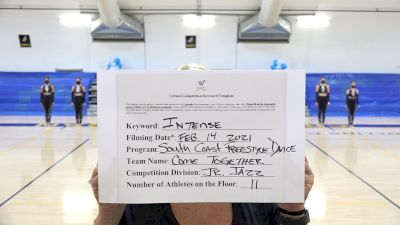 Virtual Competition Keyword Template
Keyword: INTENSE
Filming Date* FEB. 14 2021
Program: SOUTH COAST FREESTYLE DANCE
Team Name COME TOGETHER
Competition Division: JR. JAZZ
Number of Athletes on the Floor 11